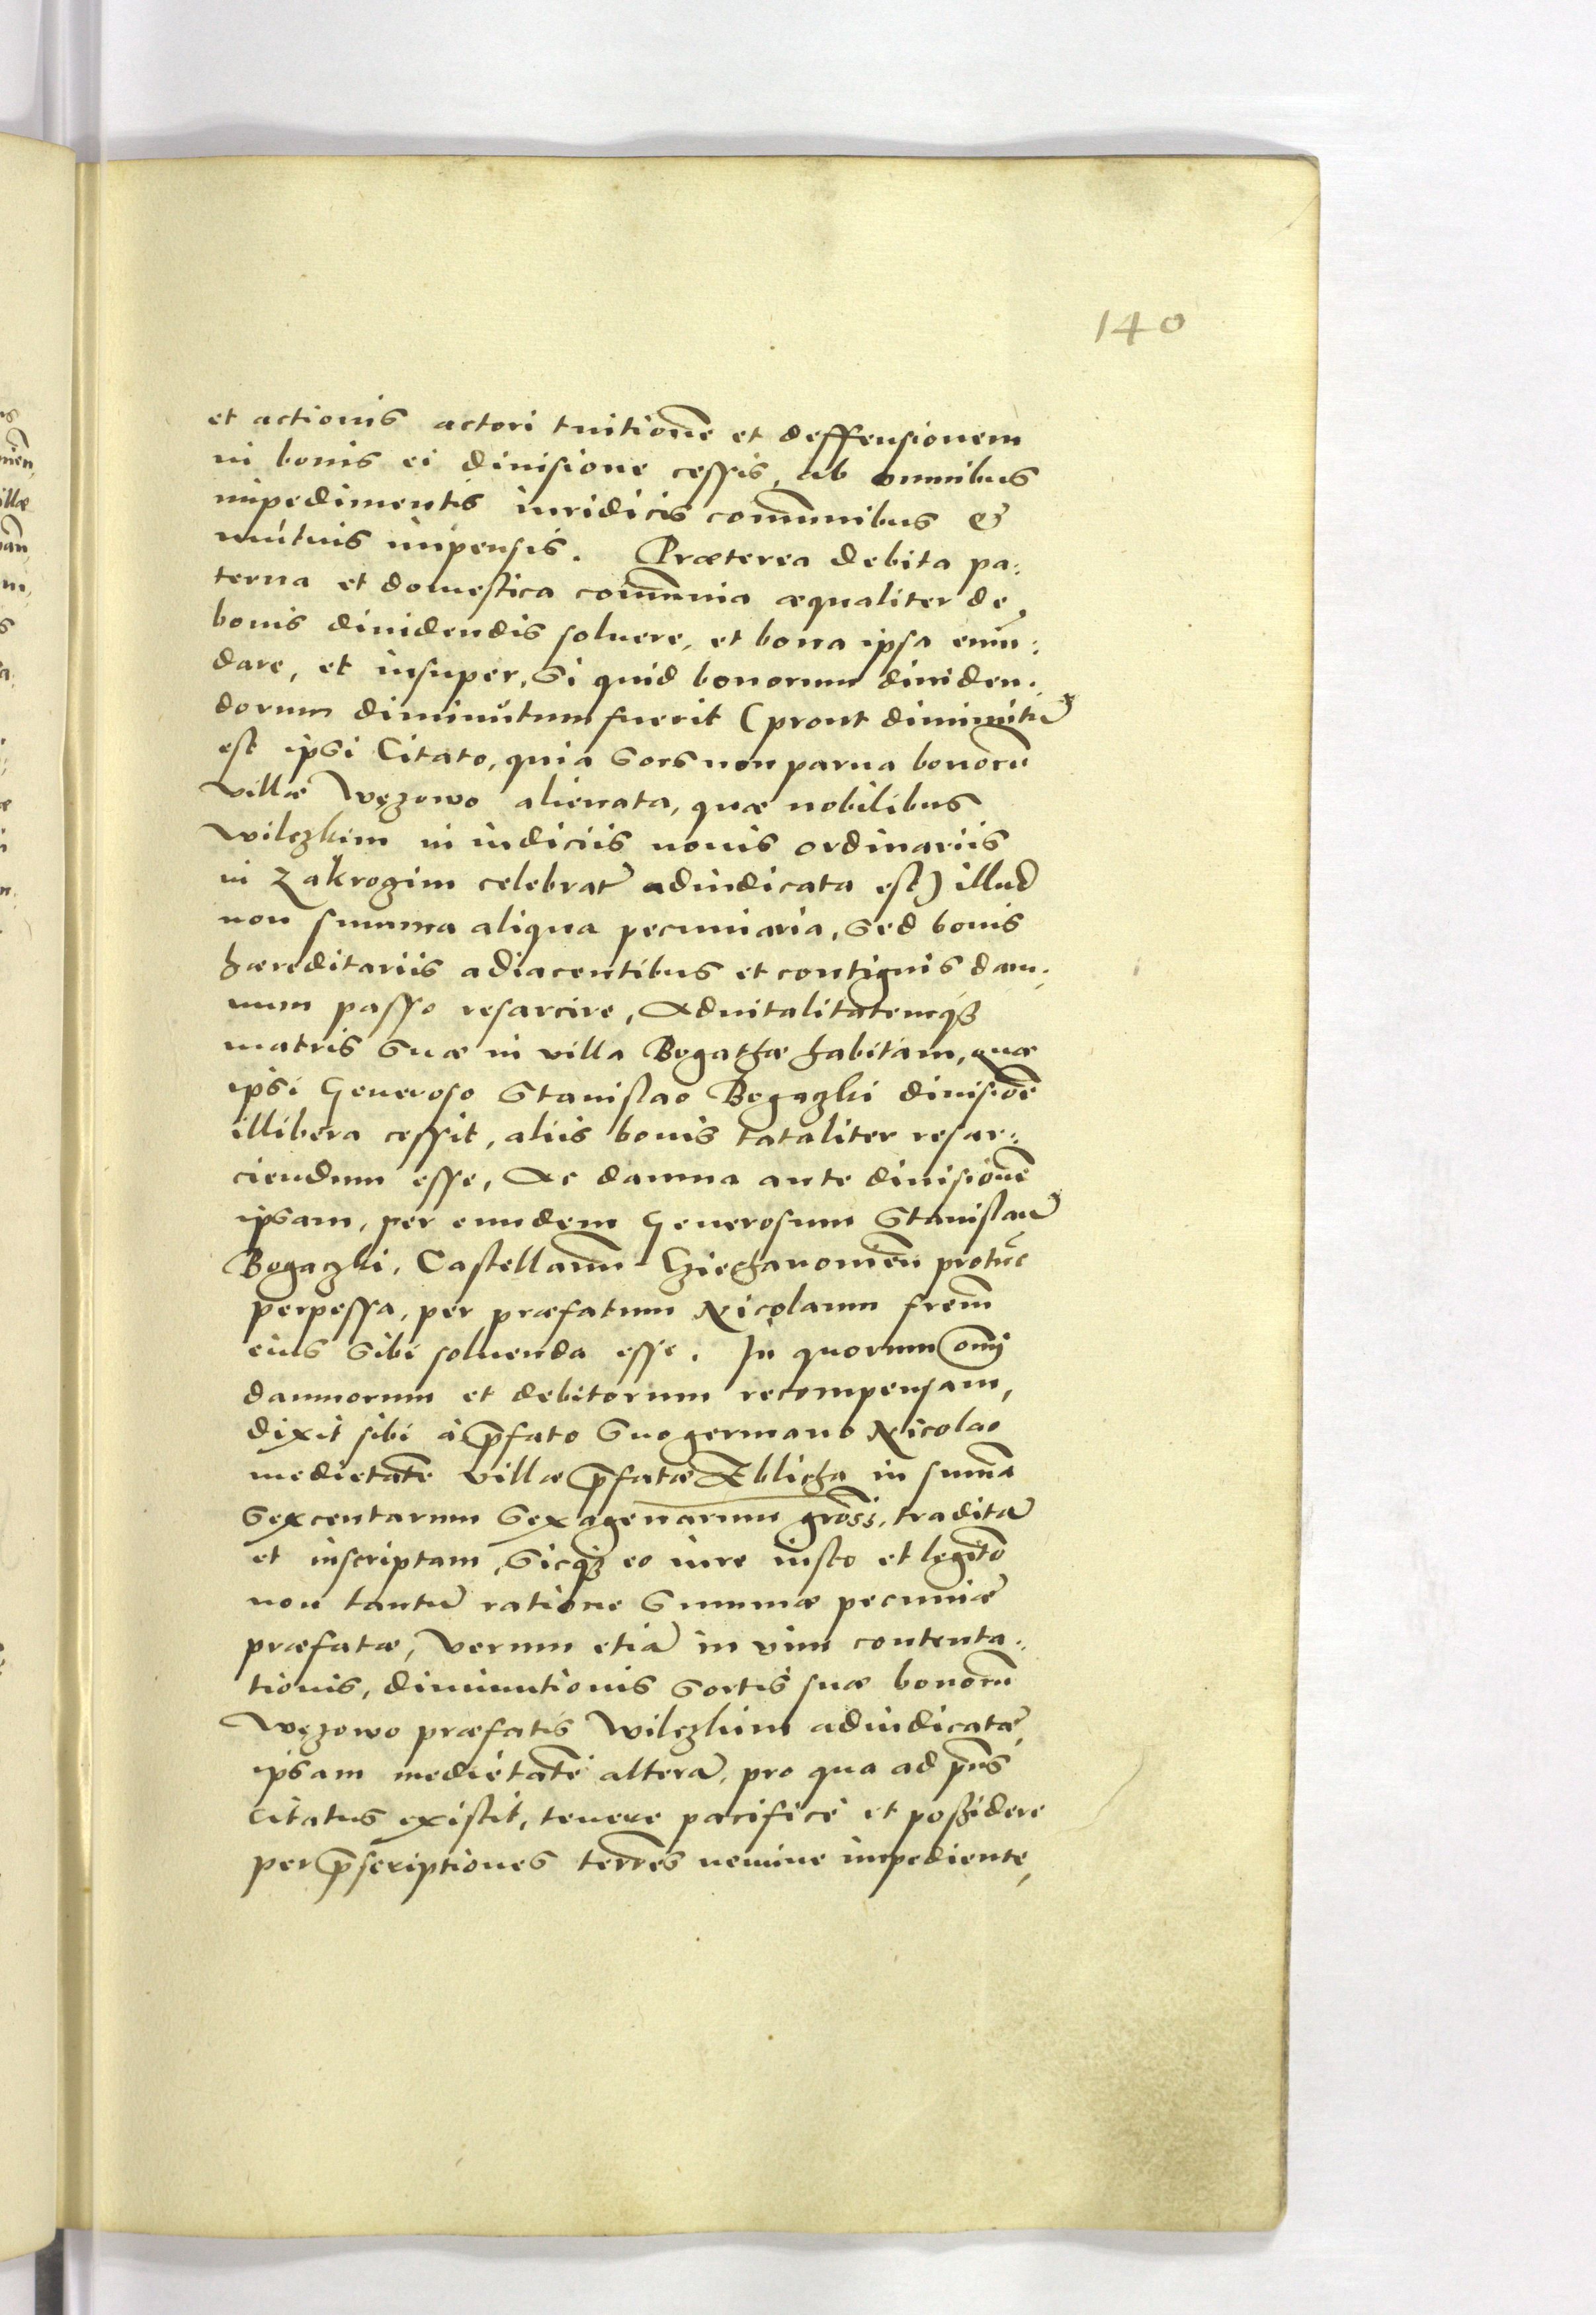 140
et actionis actori tuitionē et deffensionem
in bonis ei diuisione cessis, ab omnibus
impedimentis iuridicis com̄unibus &
mútuis impensis. Præterea debita pa:
terna et domestica com̄unia æqualiter de
bonis diuidendis soluere, et bona ipsa emū:
dare, et insuper, si quid bonorum diuiden:
dorum diminútum fuerit (prout diminutū
est ipsi Citato, quia sors non parua bonorū
villæ Węzowo alienata, quæ nobilibus
Wilczkim in iudiciis nouis ordinariis
in Zakrozim celebrat̃ adiudicata est) illud
non summa aliqua pecuniaria, sed bonis
hæreditariis adiacentibus et contiguis dam:
num passo resarcire, Aduitalitatemq₃
matris suæ in villa Bogathæ habitam, quæ
ipsi Generoso Stanislao Bogaczki diuisiōe
illibera cessit, aliis bonis tataliter resar:
ciendum esse, Ac damna ante diuisionē
ipsam, per eundem Generosum Stanislaū
Bogaczki, Castellanū Cziechanomień protūc
perpessa, per præfatum Nicolaum frem̄
eius sibi soluenda esse. In quorum om̄i
damnorum et debitorum recompensam,
dixit sibi à p̄fato suo germano Nicolao
medietatē villæ p̄fatæ Xblicha in sum̄a
sexcentarum sexagenarum grossi, traditā
et inscriptam, sicq₃ eo iure iusto et legit̄o
non tantū ratione summæ pecuniæ
præfatæ, verum etiā in vim contenta:
tionis, diminutionis sortis suæ bonorū
Węzowo præfatis Wilczkim adiudicatæ,
ipsam medietatē alterā, pro qua ad p̄ns
citatus existit, tenere pacificè et possidere
per p̄scriptiones terr̄es nemine impediente,